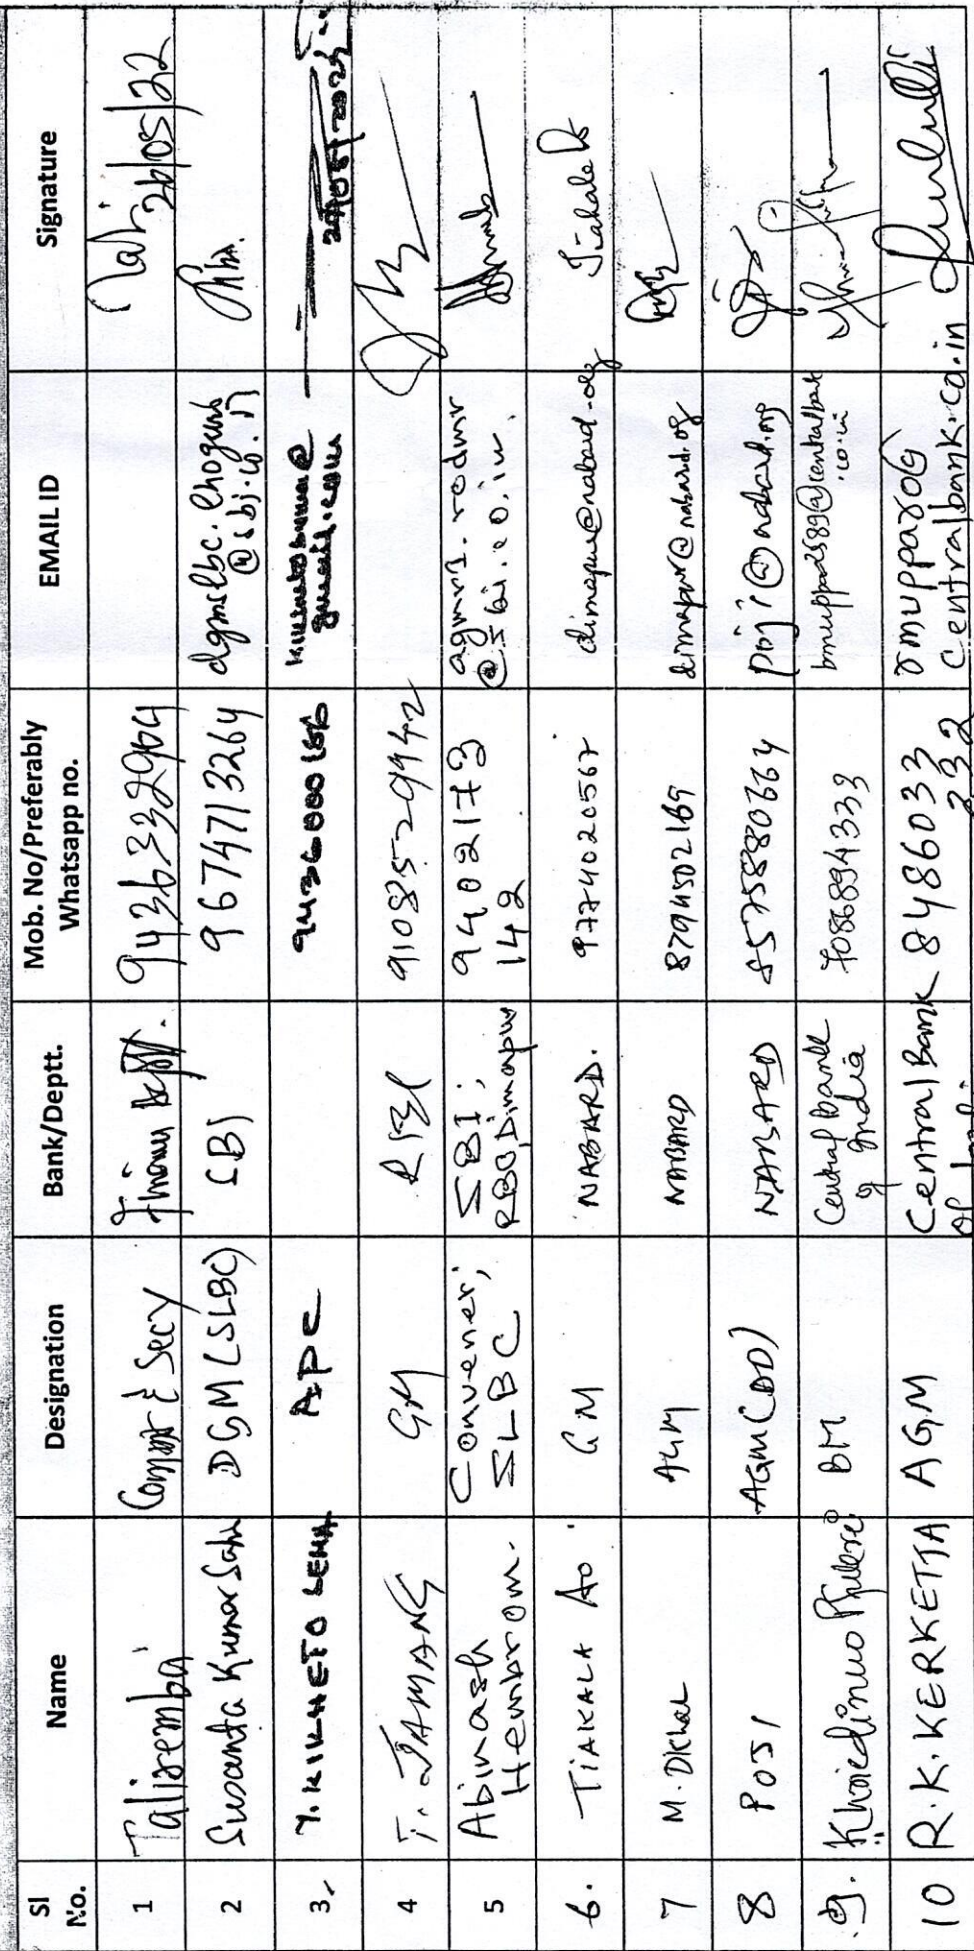 Sl No. Name Designation Bank/Deptt. Mob. No/Preferably Whatsapp no. EMAIL ID Signature
1 Taliremba Commr & Secy Finance Deptt. 9436332964 20/05/22
2 Susanta Kumar Sahu DGM (SLBC) SBI 9674713264 dgmslbc.lhoguw @sbi.co.in
3. Y. KIKHETO SEMA APC 9436000186
4 T. JAMANG GM RBI 9108529942
5 Abinash Hembrom. Convener, SLBC SBI; RBO, Dimapur 9402173 142 agmr1.rodmr @sbi.co.in
6. TIAKALA Ao. GM NABARD. 9774020567 dimapur@nabard.org Tiakala
7 M. Dikhal AGM NABARD 8794502169 dimapur@nabard.org
8 POJI AGM (DD) NABARD 8575880664 poji@nabard.org
9. BM Central bank of India 7086894333 bmuppa2589@centralbank.co.in
10 R.K. KERKETTA AGM Central Bank Of 8486033 232 rmupparo@ Centralbank.co.in